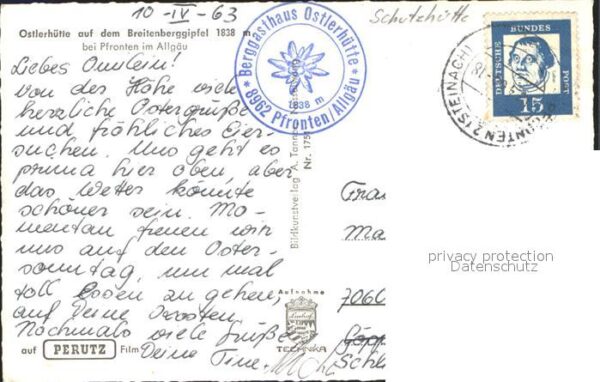 10-IV-63
Schutzhütte
Ostlerhütte auf dem Breitenberggipfel 1838 m
bei Pfronten im Allgäu
Liebes Omilein!
Von der Höhe viele
herzliche Ostergrüße
und fröhliches Eier-
suchen. Uns geht es
prima hier oben, aber
das Wetter könnte
schöner sein. Mo-
mentan freuen wir
uns auf den Oster-
sonntag, um mal
toll essen zu gehen,
auf Deine Kosten.
Nochmals viele Grüße
Deine
auf PERUTZ Film
* Berggasthaus Ostlerhütte *
1838 m
8962 Pfronten/Allgäu
Bildkunstverlag A.
Nr. 175
Aufnahme
Linhof
TECHNIKA
DEUTSCHE
BUNDES
POST
15
(STEINACH)
Frau
Ma
7060
Schl
privacy protection
Datenschutz